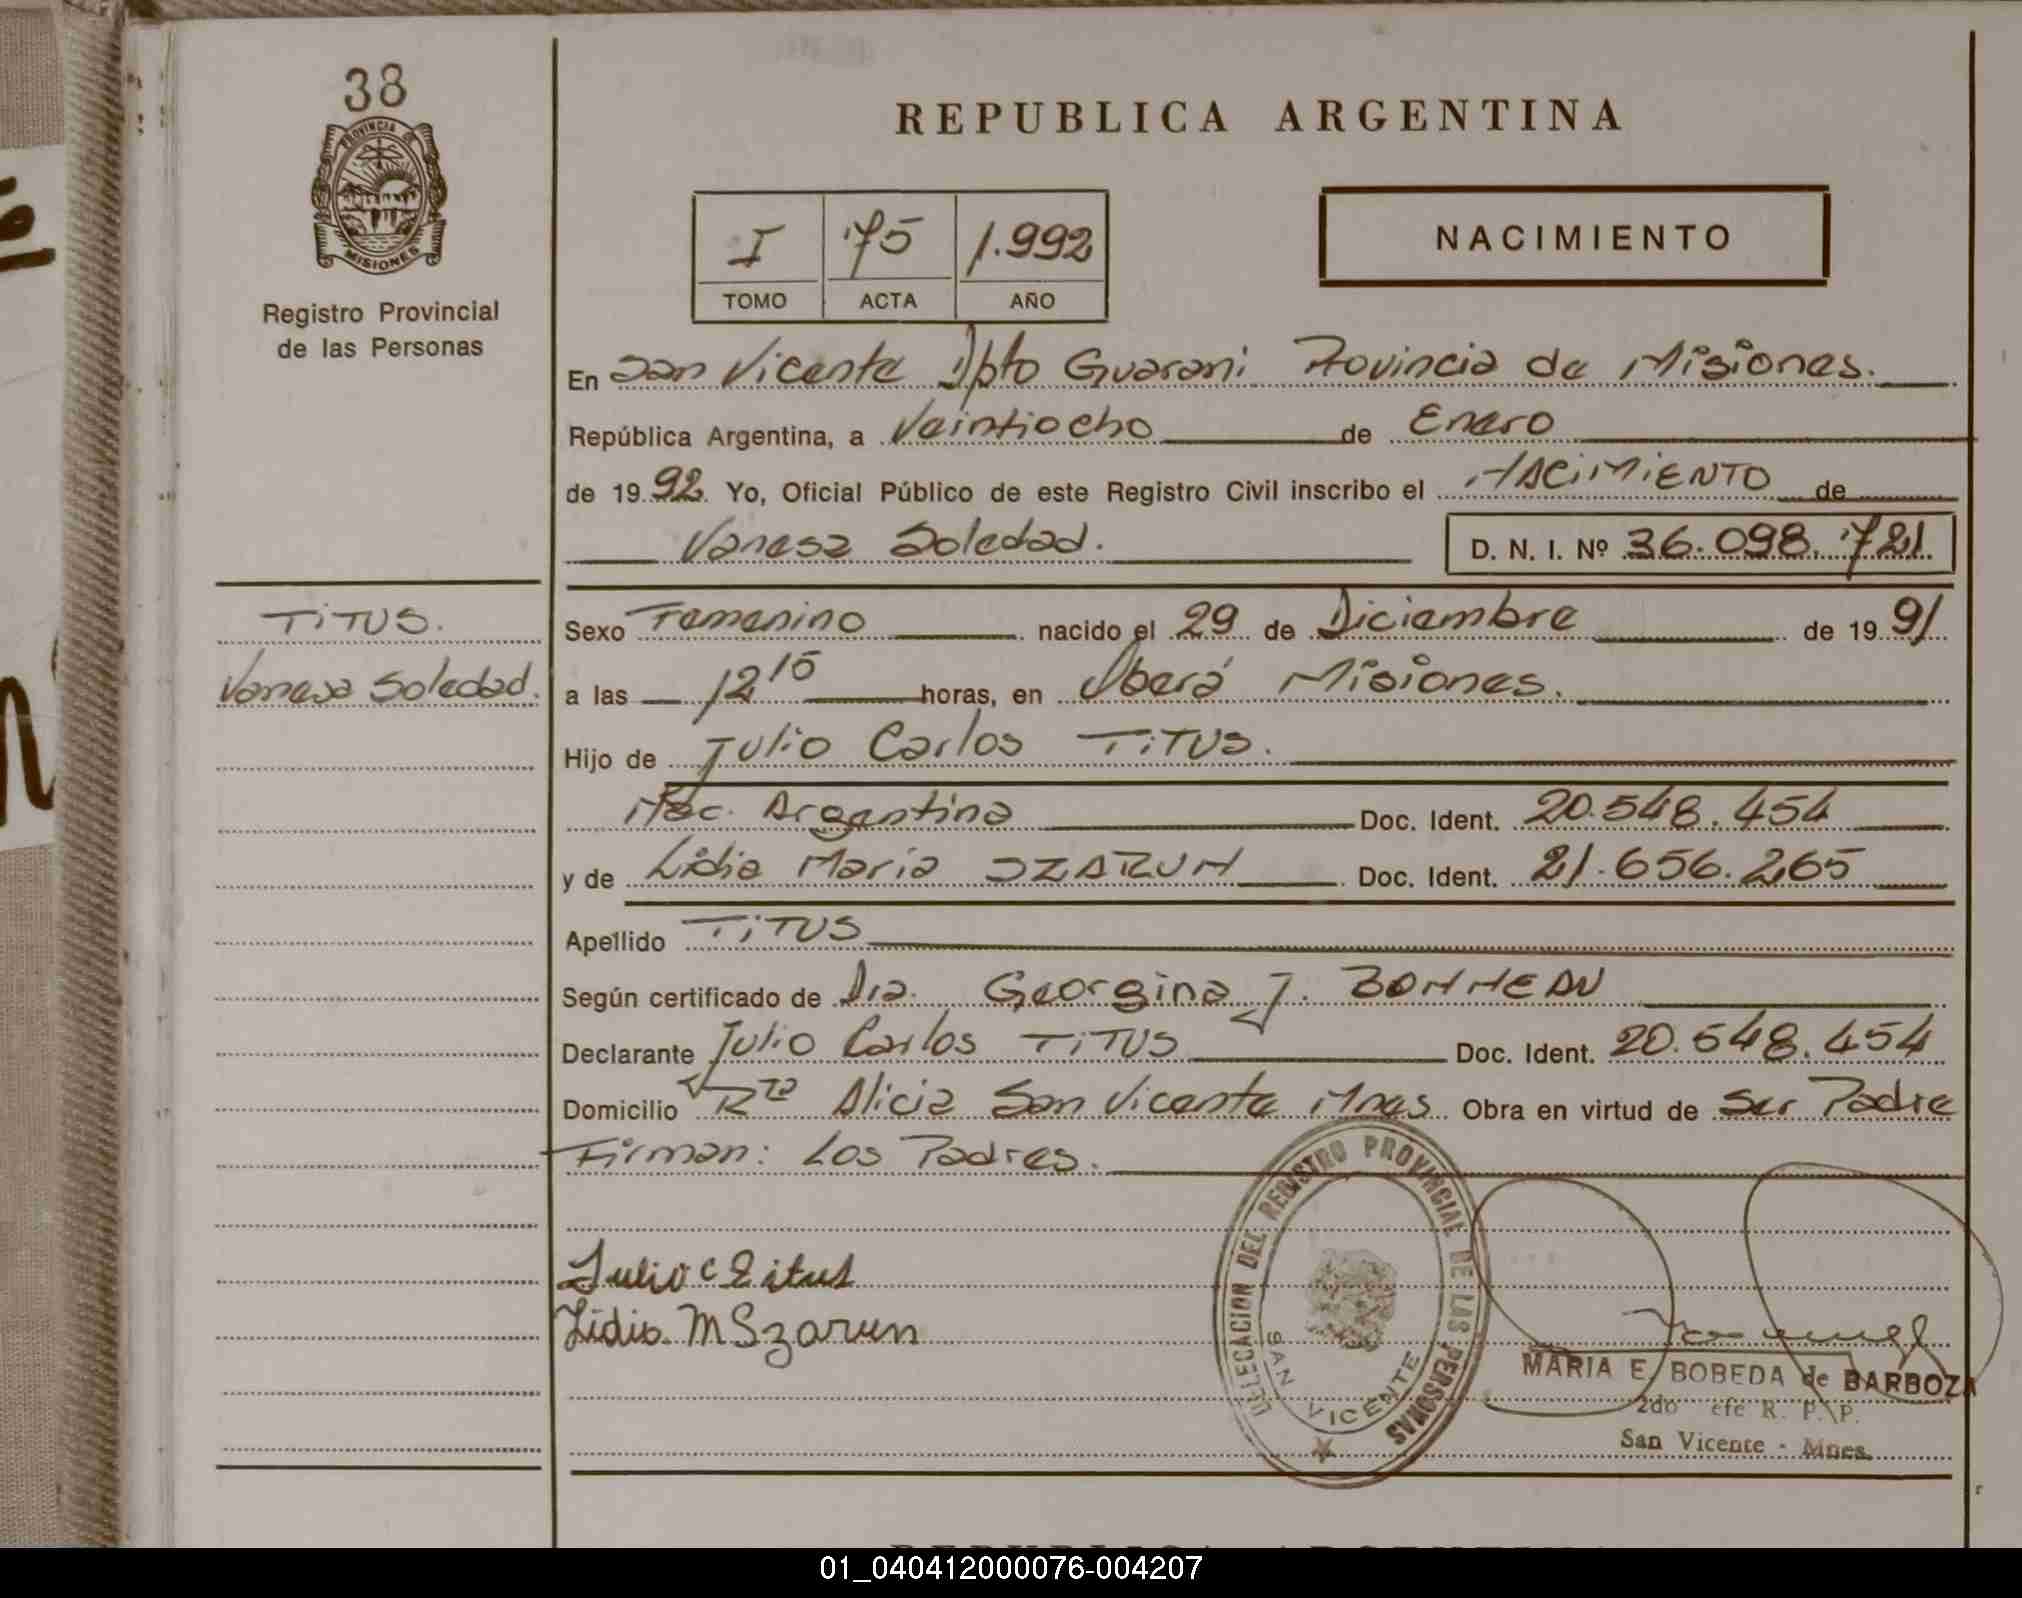 38
PROVINCIA
MISIONES
Registro Provincial
de las Personas
REPUBLICA ARGENTINA
I 75 1.992
TOMO ACTA AÑO
NACIMIENTO
En San Vicente Dpto Guarani Provincia de Misiones.
República Argentina, a Veintiocho de Enero
de 19 92. Yo, Oficial Público de este Registro Civil inscribo el NACIMIENTO de
Vanesa Soledad.
D. N. I. Nº 36.098.721
TiTUS.
Vanesa Soledad.
Sexo Femenino nacido el 29 de Diciembre de 19 91
a las 12 15 horas, en Oberá Misiones.
Hijo de Julio Carlos TiTUS.
Nac. Argentina Doc. Ident. 20.548.454
y de Lidia Maria SZARUN Doc. Ident. 21.656.265
Apellido TiTUS
Según certificado de Dra. Georgina J. BONNEAU
Declarante Julio Carlos TiTUS Doc. Ident. 20.548.454
Domicilio Rto Alicia San Vicente Mnes Obra en virtud de Ser Padre
Firman: Los Padres.
DELEGACION DEL REGISTRO PROVINCIAL DE LAS PERSONAS
SAN VICENTE
Julio C Titus
Lidia M Szarun
MARIA E. BOBEDA de BARBOZA
2do efe R. P. P.
San Vicente - Mnes.
01_040412000076-004207